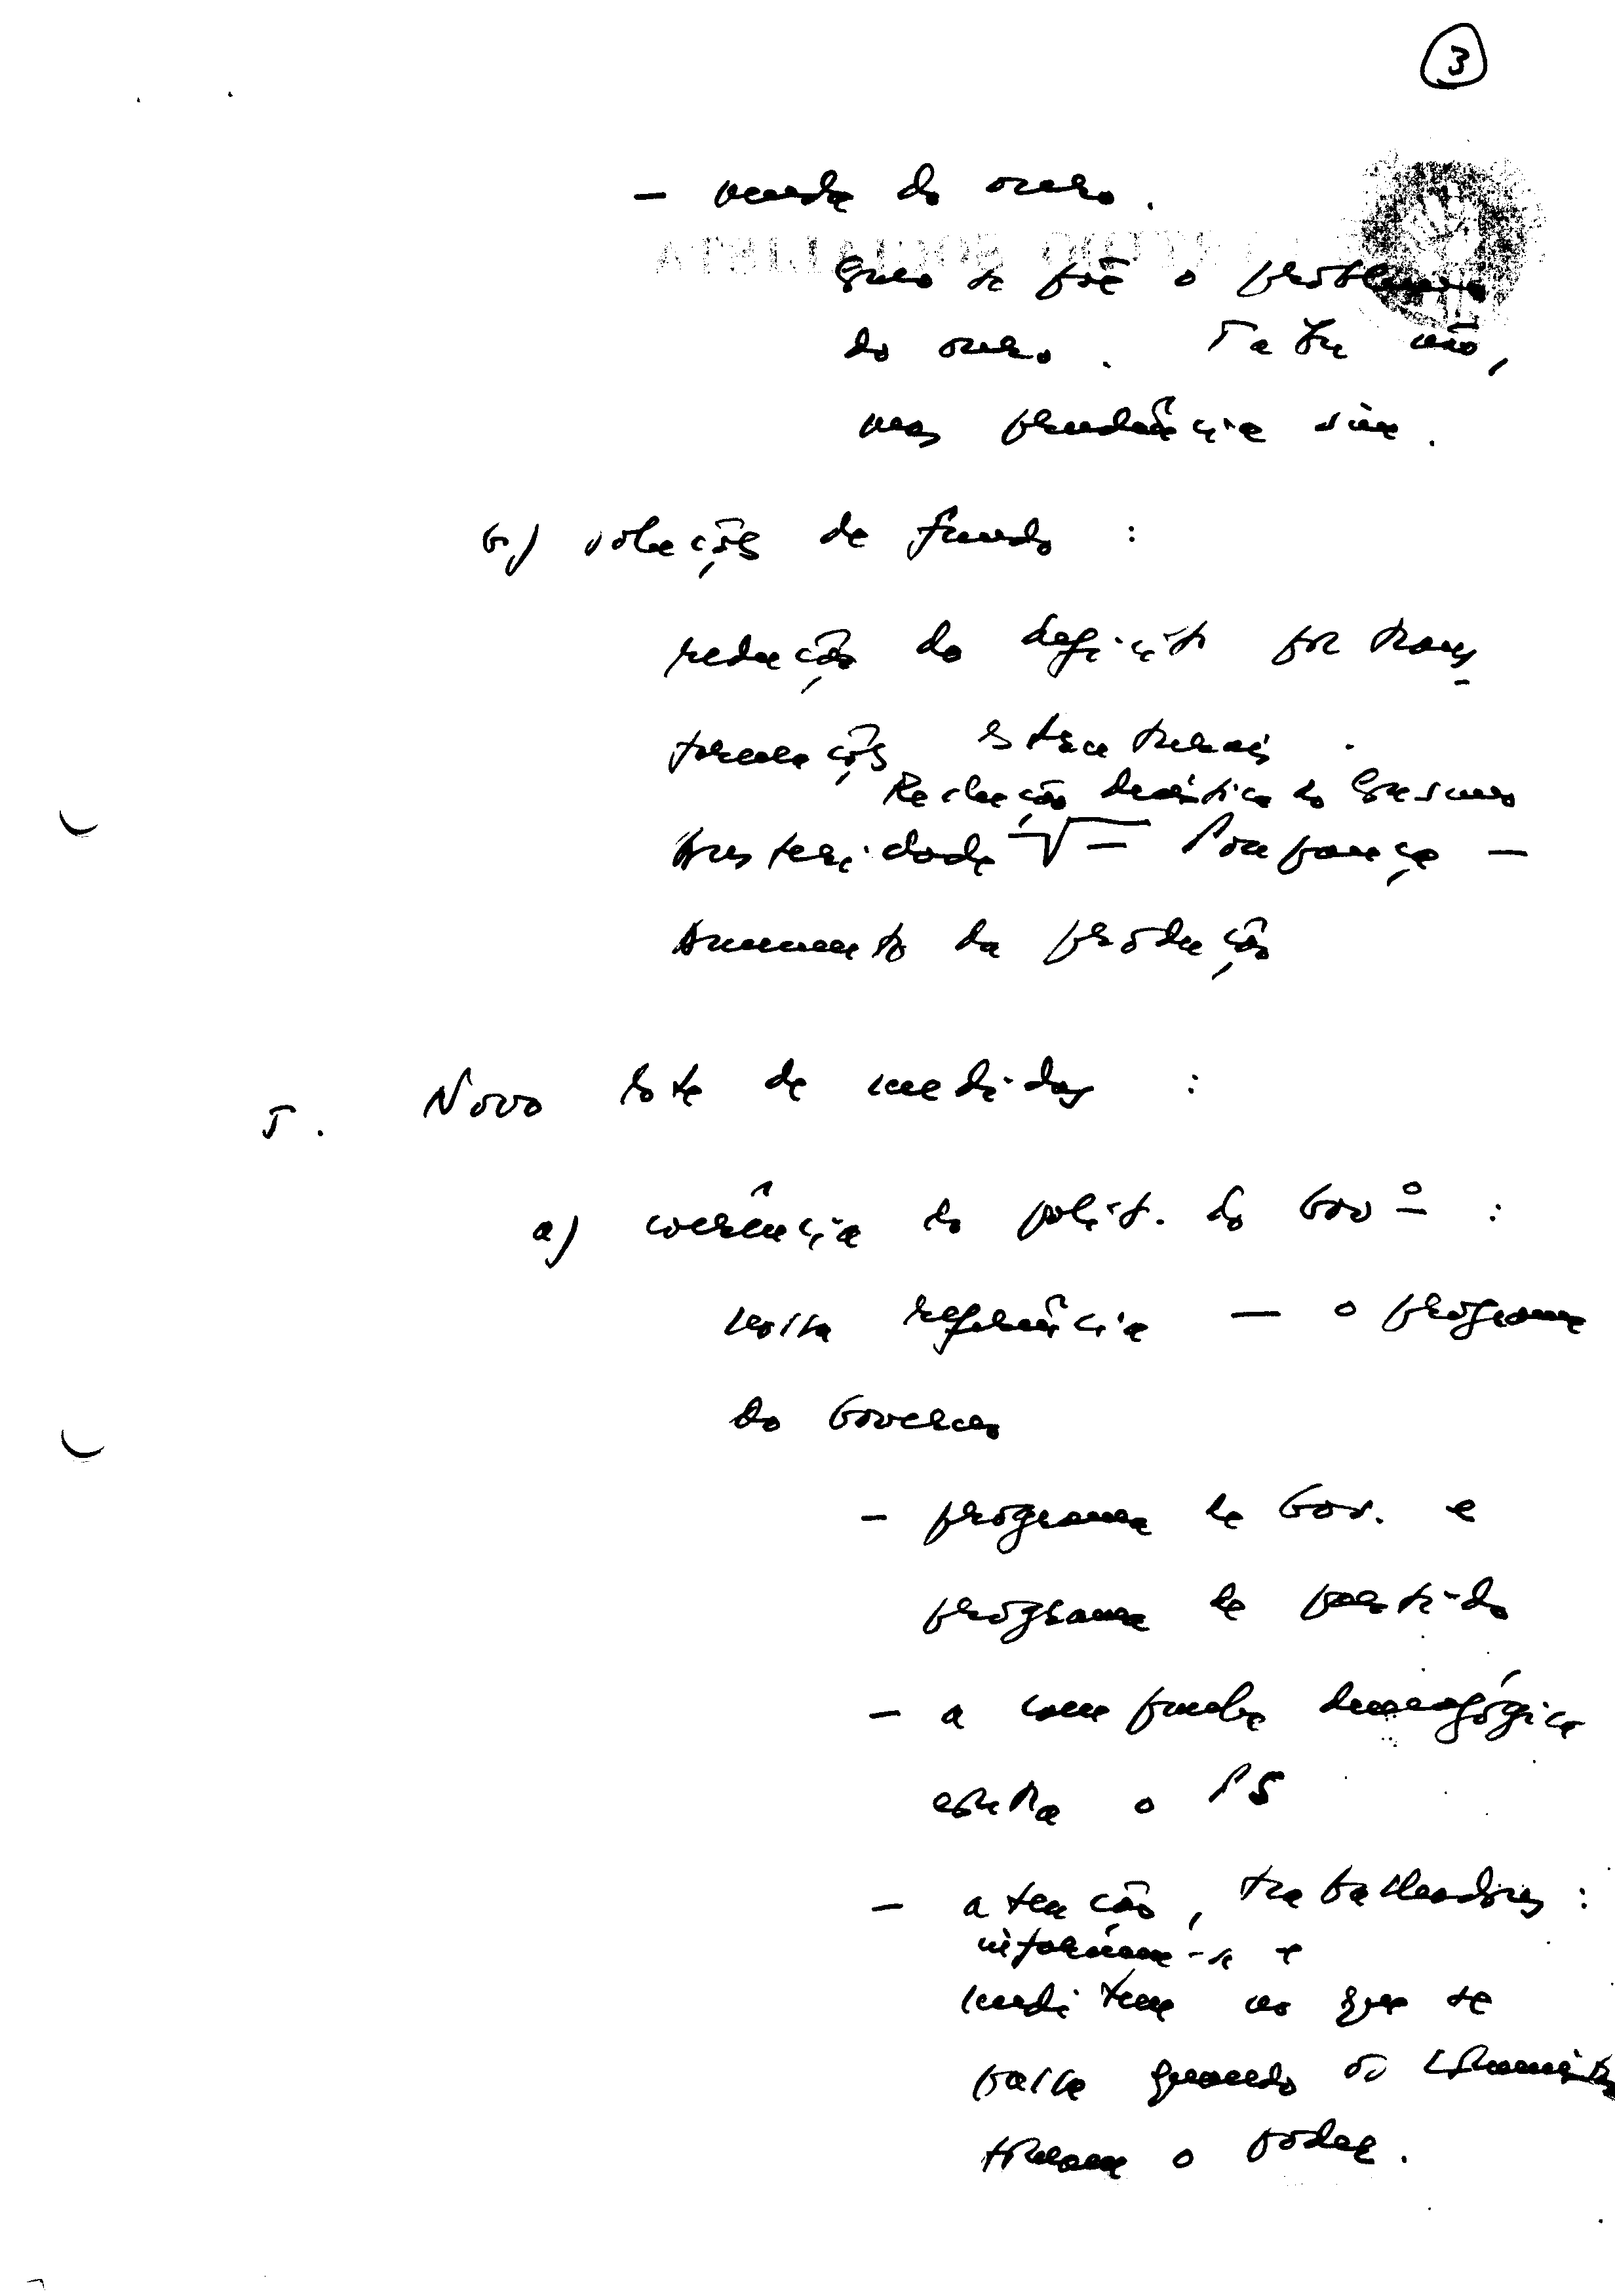 3
- venda do ouro.
Como se põe o problema
do ouro. Tabu não,
mas prudência sim.
b) soluções de fundo :
redução do deficit por trans-
formações estruturais.
Redução drástica do
Austeridade - Poupança -
Aumento da produção
5. Novo lote de medidas :
a) coerência da polít. do Govº :
nossa referência - o programa
do Governo
- programa de Gov. e
programa de partido
- a campanha demagógica
contra o PS
- atenção, trabalhadores :
informem-se e
meditem no que se
passa quando os comunistas
tomam o poder.